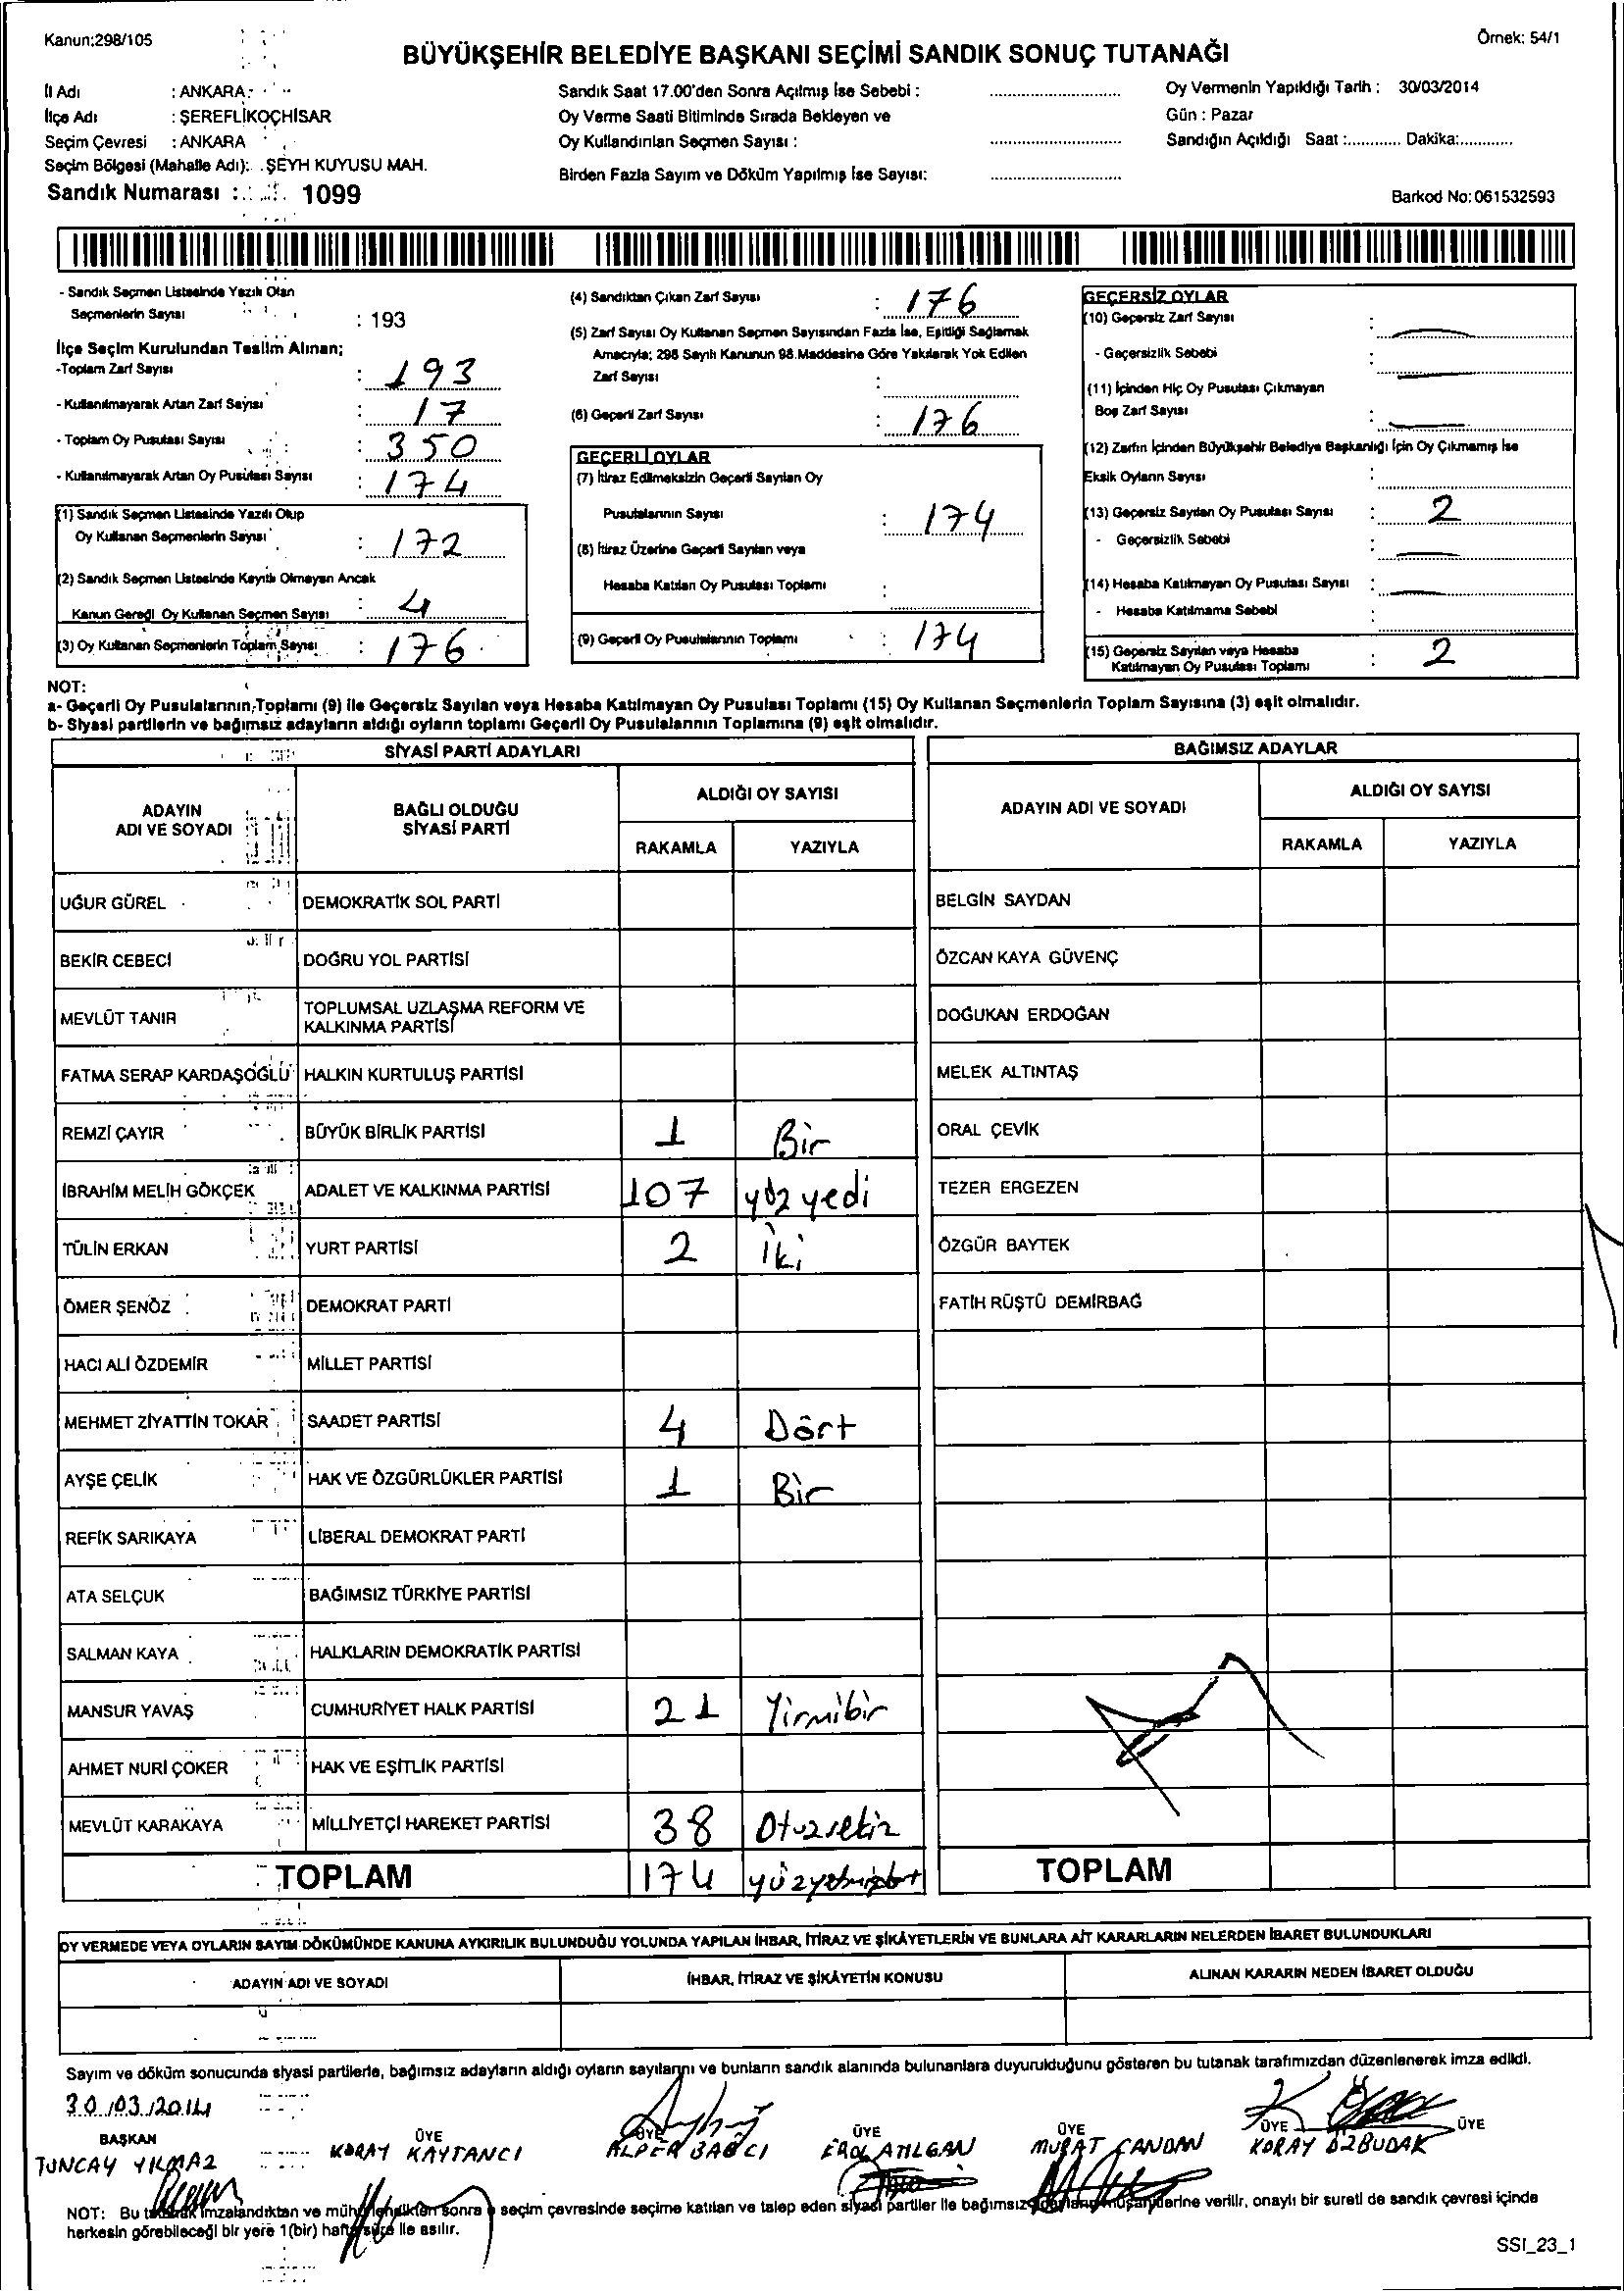 Kanun:298/105
Örnek: 54/1
BÜYÜKŞEHİR BELEDİYE BAŞKANI SEÇİMİ SANDIK SONUÇ TUTANAĞI
İl Adı : ANKARA
İlçe Adı : ŞEREFLİKOÇHİSAR
Seçim Çevresi : ANKARA
Seçim Bölgesi (Mahalle Adı): ŞEYH KUYUSU MAH.
Sandık Numarası : 1099
Sandık Saat 17.00'den Sonra Açılmış İse Sebebi :
Oy Verme Saati Bitiminde Sırada Bekleyen ve
Oy Kullandırılan Seçmen Sayısı :
Birden Fazla Sayım ve Döküm Yapılmış İse Sayısı:
Oy Vermenin Yapıldığı Tarih : 30/03/2014
Gün : Pazar
Sandığın Açıldığı Saat :............ Dakika:............
Barkod No: 061532593
- Sandık Seçmen Listesinde Yazılı Olan
Seçmenlerin Sayısı : 193
İlçe Seçim Kurulundan Teslim Alınan;
-Toplam Zarf Sayısı : 193
- Kullanılmayarak Artan Zarf Sayısı : 17
- Toplam Oy Pusulası Sayısı : 350
- Kullanılmayarak Artan Oy Pusulası Sayısı : 174
(1) Sandık Seçmen Listesinde Yazılı Olup
Oy Kullanan Seçmenlerin Sayısı : 172
(2) Sandık Seçmen Listesinde Kayıtlı Olmayan Ancak
Kanun Gereği Oy Kullanan Seçmen Sayısı : 4
(3) Oy Kullanan Seçmenlerin Toplam Sayısı : 176
(4) Sandıktan Çıkan Zarf Sayısı : 176
(5) Zarf Sayısı Oy Kullanan Seçmen Sayısından Fazla İse, Eşitliği Sağlamak
Amacıyla; 298 Sayılı Kanunun 98.Maddesine Göre Yakılarak Yok Edilen
Zarf Sayısı :
(6) Geçerli Zarf Sayısı : 176
GEÇERLİ OYLAR
(7) İtiraz Edilmeksizin Geçerli Sayılan Oy
Pusulalarının Sayısı : 174
(8) İtiraz Üzerine Geçerli Sayılan veya
Hesaba Katılan Oy Pusulası Toplamı :
(9) Geçerli Oy Pusulalarının Toplamı : 174
GEÇERSİZ OYLAR
(10) Geçersiz Zarf Sayısı : —
- Geçersizlik Sebebi : —
(11) İçinden Hiç Oy Pusulası Çıkmayan
Boş Zarf Sayısı : —
(12) Zarfın İçinden Büyükşehir Belediye Başkanlığı İçin Oy Çıkmamış İse
Eksik Oyların Sayısı :
(13) Geçersiz Sayılan Oy Pusulası Sayısı : 2
- Geçersizlik Sebebi : —
(14) Hesaba Katılmayan Oy Pusulası Sayısı : —
- Hesaba Katılmama Sebebi
(15) Geçersiz Sayılan veya Hesaba
Katılmayan Oy Pusulası Toplamı : 2
NOT:
a- Geçerli Oy Pusulalarının Toplamı (9) ile Geçersiz Sayılan veya Hesaba Katılmayan Oy Pusulası Toplamı (15) Oy Kullanan Seçmenlerin Toplam Sayısına (3) eşit olmalıdır.
b- Siyasi partilerin ve bağımsız adayların aldığı oyların toplamı Geçerli Oy Pusulalarının Toplamına (9) eşit olmalıdır.
SİYASİ PARTİ ADAYLARI
ADAYIN ADI VE SOYADI
BAĞLI OLDUĞU SİYASİ PARTİ
ALDIĞI OY SAYISI
RAKAMLA YAZIYLA
UĞUR GÜREL DEMOKRATİK SOL PARTİ
BEKİR CEBECİ DOĞRU YOL PARTİSİ
MEVLÜT TANIR TOPLUMSAL UZLAŞMA REFORM VE KALKINMA PARTİSİ
FATMA SERAP KARDAŞOĞLU HALKIN KURTULUŞ PARTİSİ
REMZİ ÇAYIR BÜYÜK BİRLİK PARTİSİ 1 Bir
İBRAHİM MELİH GÖKÇEK ADALET VE KALKINMA PARTİSİ 107 yüz yedi
TÜLİN ERKAN YURT PARTİSİ 2 İki
ÖMER ŞENÖZ DEMOKRAT PARTİ
HACI ALİ ÖZDEMİR MİLLET PARTİSİ
MEHMET ZİYATTİN TOKAR SAADET PARTİSİ 4 Dört
AYŞE ÇELİK HAK VE ÖZGÜRLÜKLER PARTİSİ 1 Bir
REFİK SARIKAYA LİBERAL DEMOKRAT PARTİ
ATA SELÇUK BAĞIMSIZ TÜRKİYE PARTİSİ
SALMAN KAYA HALKLARIN DEMOKRATİK PARTİSİ
MANSUR YAVAŞ CUMHURİYET HALK PARTİSİ 21 Yirmibir
AHMET NURİ ÇÖKER HAK VE EŞİTLİK PARTİSİ
MEVLÜT KARAKAYA MİLLİYETÇİ HAREKET PARTİSİ 38 Otuzsekiz
TOPLAM 174
BAĞIMSIZ ADAYLAR
ADAYIN ADI VE SOYADI
ALDIĞI OY SAYISI
RAKAMLA YAZIYLA
BELGİN SAYDAN
ÖZCAN KAYA GÜVENÇ
DOĞUKAN ERDOĞAN
MELEK ALTINTAŞ
ORAL ÇEVİK
TEZER ERGEZEN
ÖZGÜR BAYTEK
FATİH RÜŞTÜ DEMİRBAĞ
TOPLAM
OY VERMEDE VEYA OYLARIN SAYIM DÖKÜMÜNDE KANUNA AYKIRILIK BULUNDUĞU YOLUNDA YAPILAN İHBAR, İTİRAZ VE ŞİKÂYETLERİN VE BUNLARA AİT KARARLARIN NELERDEN İBARET BULUNDUKLARI
ADAYIN ADI VE SOYADI
İHBAR, İTİRAZ VE ŞİKÂYETİN KONUSU
ALINAN KARARIN NEDEN İBARET OLDUĞU
Sayım ve döküm sonucunda siyasi partilerle, bağımsız adayların aldığı oyların sayılarını ve bunların sandık alanında bulunanlara duyurulduğunu gösteren bu tutanak tarafımızdan düzenlenerek imza edildi.
30/03/2014
BAŞKAN ÜYE ÜYE ÜYE ÜYE ÜYE ÜYE
TUNCAY YILMAZ KORAY KAYTANCI ALPER BAĞCI EROL ATILGAN MURAT CANDAN KORAY ÖZBUDAK
NOT: Bu tutanak imzalandıktan ve mühürlendikten sonra o seçim çevresinde seçime katılan ve talep eden siyasi partiler ile bağımsız adayların müşahitlerine verilir, onaylı bir sureti de sandık çevresi içinde
herkesin görebileceği bir yere 1(bir) hafta süre ile asılır.
SSI_23_1